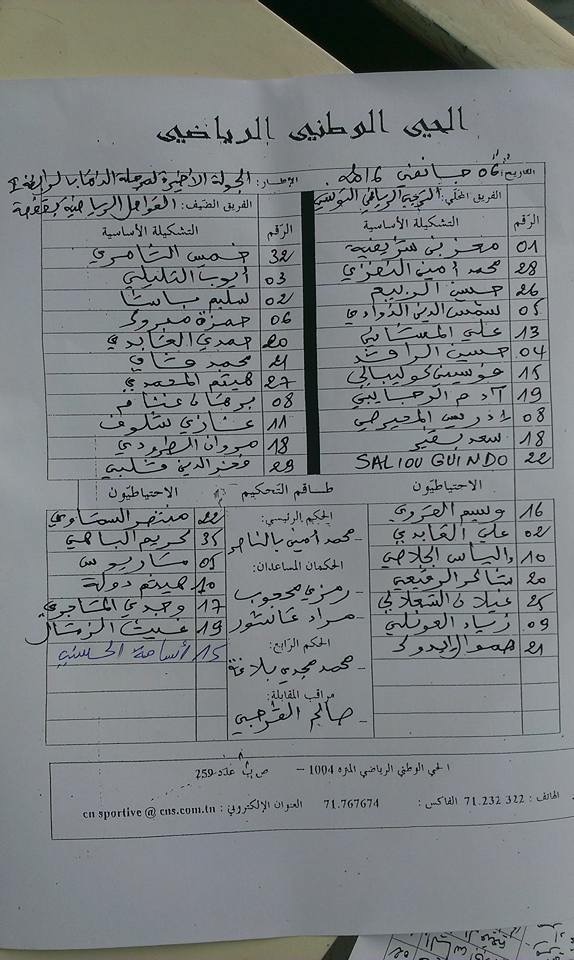 الحي الوطني الرياضي
التاريخ: 06 جانفي 2016 الإطار: الجولة الأخيرة لمرحلة الذهاب الرابطة 1
الفريق المحلي: الترجي الرياضي التونسي الفريق الضيف: القوافل الرياضية بقفصة
الرقم التشكيلة الأساسية الرقم التشكيلة الأساسية
01 معز بن شريفية 32 خميس الثامري
28 محمد أمين 03 أيوب التليلي
26 حسين الربيع 02 سليم باشا
05 شمس الدين الذوادي 06 حمزة مبروك
13 علي المشاني 20 حمدي العابدي
04 حسين الراقد 21 محمد
15 فوسيني كوليبالي 27 هيثم المحمدي
19 آدم الرجايبي 08 برهان غنام
08 إدريس المحيرصي 11 غازي شلوف
18 سعد بقير 18 مروان الطرودي
22 SALIOU GUINDO 29 فخر الدين قلبي
الاحتياطيون طاقم التحكيم الاحتياطيون
16 وسيم 22 منتصر
02 علي العابدي 35 كريم
10 إلياس الجلاصي 05 ساريوس
20 10 هيثم دولة
25 غيلان الشعلالي 17 وجدي الماجري
09 زياد العونلي 19 غيث
21 15 أسامة الحسيني
الحكم الرئيسي:
- محمد أمين بالناصر
الحكمان المساعدان:
- رمزي محجوب
- مراد عاشور
الحكم الرابع:
- محمد مجدي بلاغة
مراقب المقابلة:
- صالح القرجي
الحي الوطني الرياضي المنزه 1004 – ص ب عدد 259
الهاتف : 71.232 322 الفاكس : 71.767674 العنوان الإلكتروني : cn sportive @ cns.com.tn